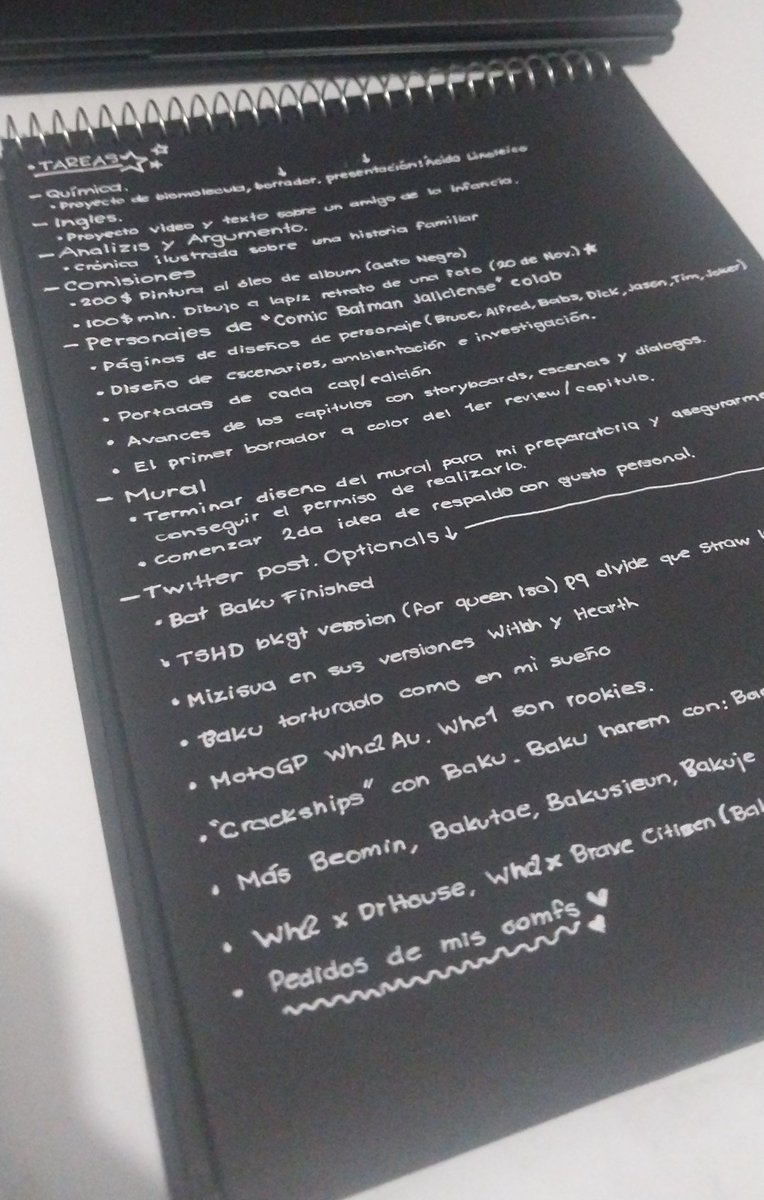 • TAREAS
- Química.
• Proyecto de biomolecula, borrador, presentación: Ácido Linoleico
- Ingles.
• Proyecto video y texto sobre un amigo de la infancia.
- Analizis y Argumento.
• Crónica ilustrada sobre una historia familiar
- Comisiones
• 200$ Pintura al óleo de album (Gato Negro)
• 100$ min. Dibujo a lapiz retrato de una foto (20 de Nov.) ★
- Personajes de "Comic Batman Jaliciense" colab
• Páginas de diseños de personaje (Bruce, Alfred, Babs, Dick, Jason, Tim, Joker)
• Diseño de escenarios, ambientación e investigación.
• Portadas de cada cap/edición
• Avances de los capitulos con storyboards, escenas y dialogos.
• El primer borrador a color del 1er review/capitulo.
- Mural
• Terminar diseño del mural para mi preparatoria y asegurarme
conseguir el permiso de realizarlo.
• Comenzar 2da idea de respaldo con gusto personal.
- Twitter post. Optionals ↓
• Bat Baku Finished
• TSHD bkgt version (for queen Isa) pq olvide que Straw
• Mizisua en sus versiones Witbh y Hearth
• Baku torturado como en mi sueño
• MotoGP Whc2 Au. Whc1 son rookies.
• "Crackships" con Baku. Baku harem con:
• Más Beomin, Bakutae, Bakusieun, Bakuje
• Wh2 x DrHouse, Whc2 x Brave Citizen
• Pedidos de mis oomfs ♥